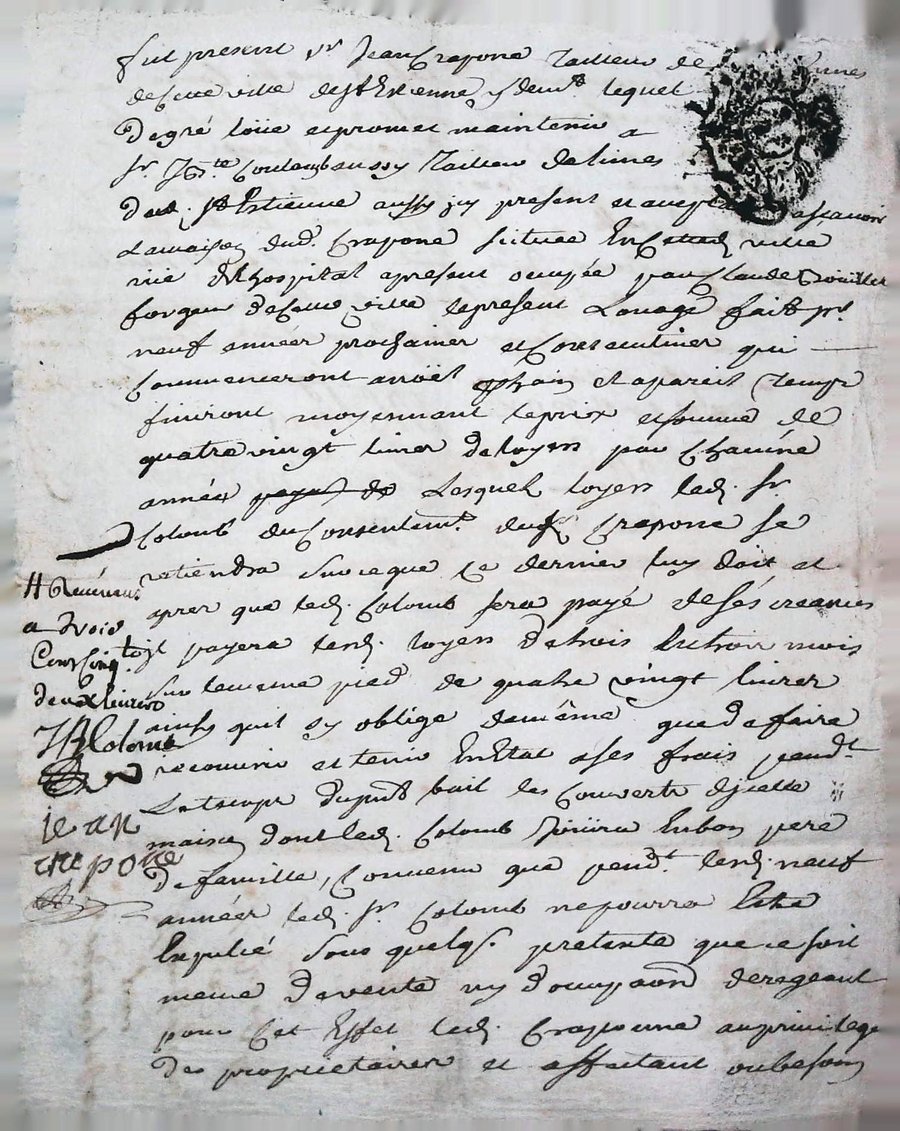 fut present sr. Jean Crapone Tailleur de
de cette ville de St Estienne y demt. lequel
de gré loüe et promet maintenir a
sr. Jn Bte Coulomb aussy Tailleur de limes
dud. St Estienne aussy icy present et accept assavoir
La maison dud. Crapone scituée En Cette ville
rüe de Lhospital apresent occupée par Claude
forgeur de Cette ville le present Louage fait pr.
neuf année prochaines et Consecutives qui
Commenceront a noël prochain et a pareil Temps
finiront moyennant le prix et somme de
quatre vingt livres de loyers par Chacune
année payer de Lesquels loyers led. sr.
Colomb du Consentemt. dud. sr Crapone se
retiendra sur ce que Ce dernier luy doit et
apres que led. Colomb sera payé de sés creances
il payera lesd. loyers de trois En trois mois
sur le meme pied de quatre vingt livres
ainsy quil sy oblige de même que de faire
recouvrir et tenir En Etat a ses frais pendt.
Le temps du pnt bail les Couverts dicelle
maison dont led. Colomb Joüira En bon pere
de famille, Convenu que pendt. lesd. neuf
années led. sr. Colomb ne pourra Estre
Expulsé sous quelqs. pretexte que ce soit
meme de vente ny d'occupaon derogeant
pour Cet Effet led. Crapone au privilege
des proprietaires et affectant au besoin
#
a
Cent Cinq te
deux livres
JB Colomb
iean
crapone